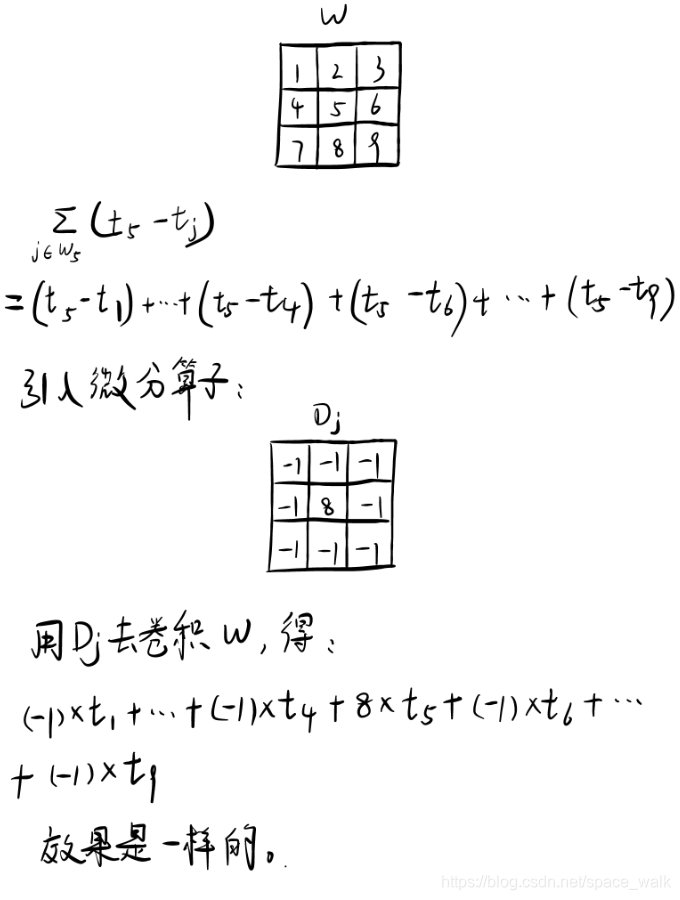 W
1 2 3
4 5 6
7 8 9
∑ (t₅ - tⱼ)
j∈W₅
= (t₅ - t₁) + ··· + (t₅ - t₄) + (t₅ - t₆) + ··· + (t₅ - t₉)
引入微分算子:
Dⱼ
-1 -1 -1
-1 8 -1
-1 -1 -1
用Dⱼ去卷积W,得:
(-1)×t₁ + ··· + (-1)×t₄ + 8×t₅ + (-1)×t₆ + ···
+ (-1)×t₉
效果是一样的。
https://blog.csdn.net/space_walk